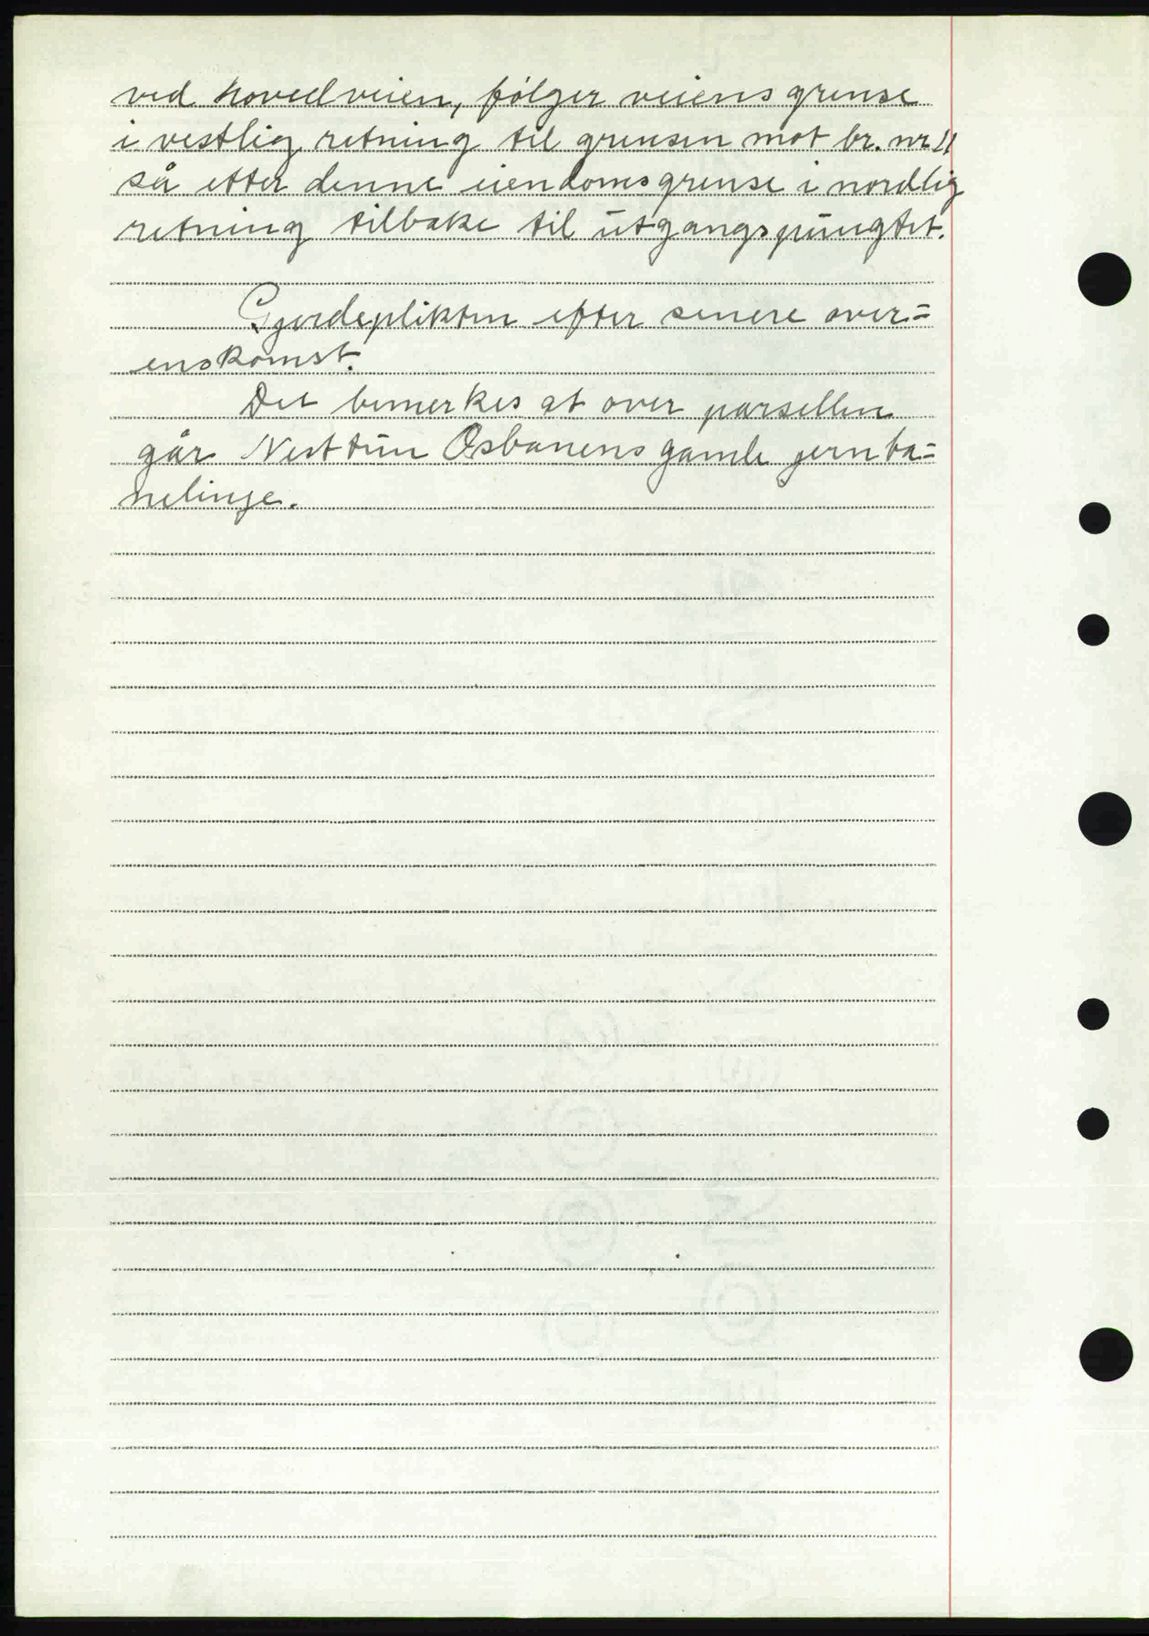 ved hovedveien, følger veiens grense
i vestlig retning til grensen mot br. nr. 11
så etter denne eiendoms grense i nordlig
retning tilbake til utgangspungtet.
Gjerdeplikten efter senere over=
enskomst.
Det bemerkes at over parsellen
går Nesttun Osbanens gamle jernba=
nelinje.